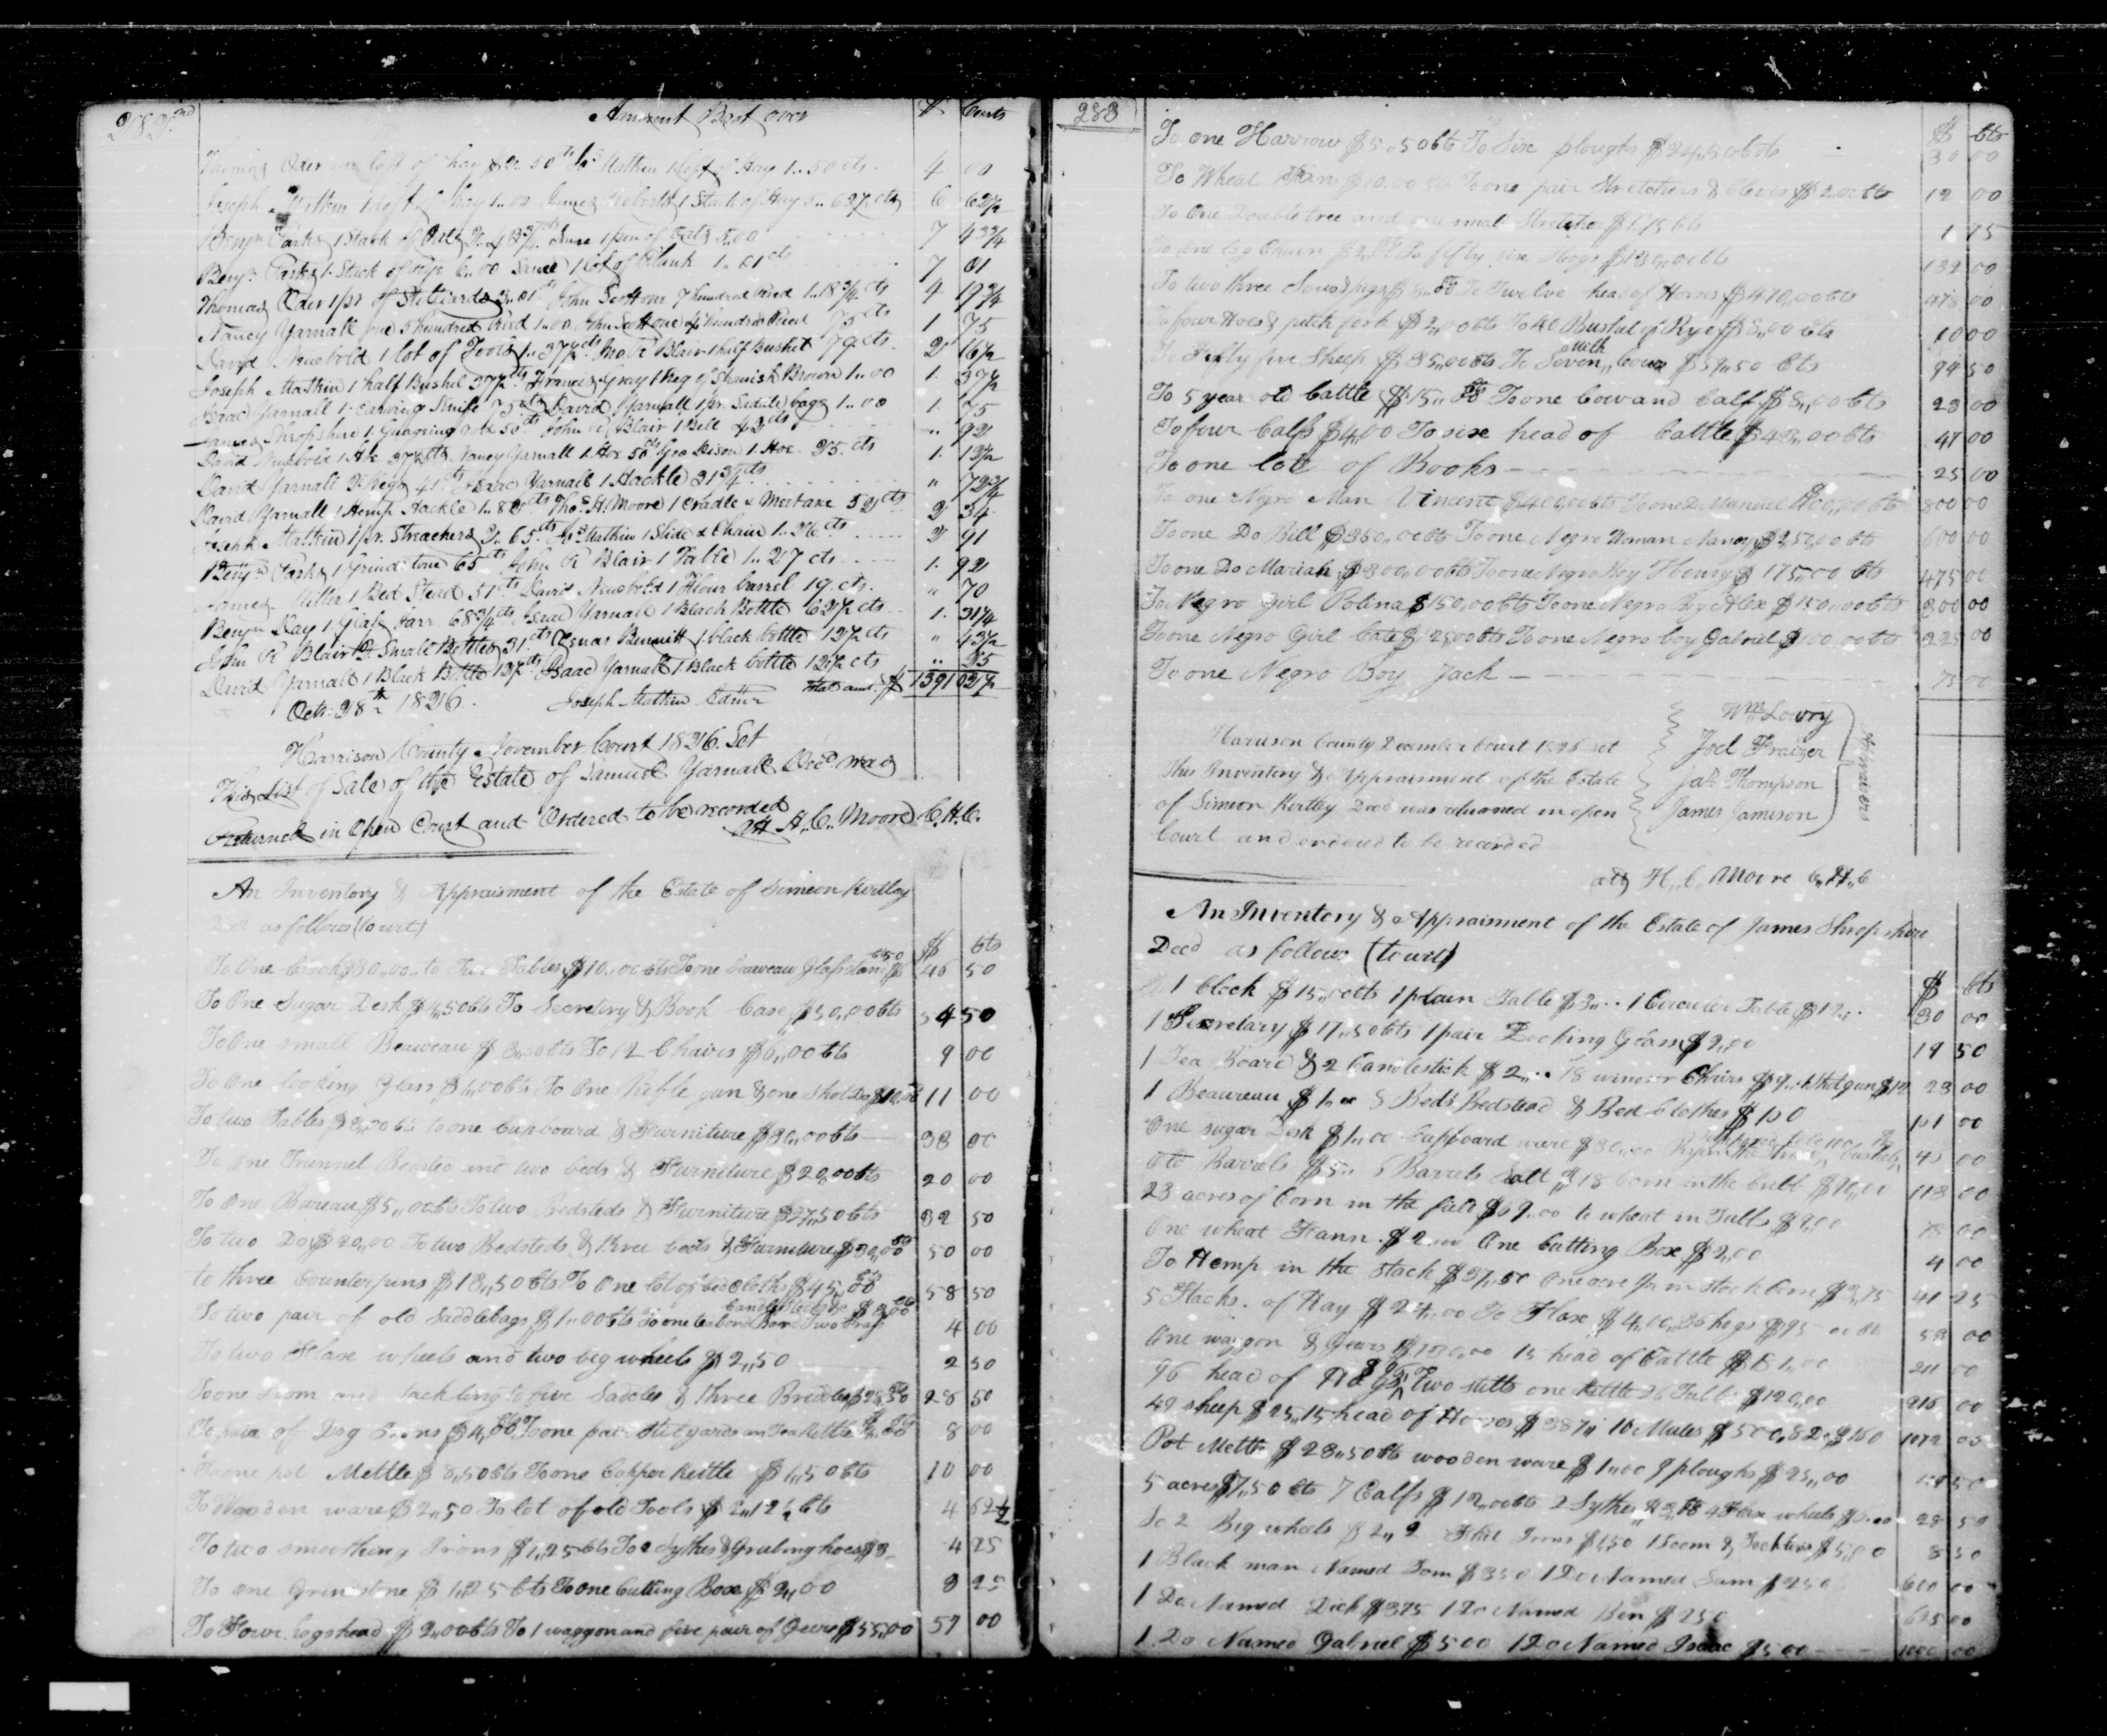 282nd
Amount Brot over $ Cents
Thomas Oder one loft of hay $2.. 50cts Js Mathin 1 loft of Hays 1.. 50 cts. 4 00
Joseph Mathin 1 loft of hay 1..00 James Roberts 1 Stack of Hay 5.. 62½ cts 6 62½
Benjn Parks 1 Stack of Oats 2.. 43¾cts Same 1 pen of Oats 5.00 7 43¾
Benjn Parks 1 Stack of 6..00 Same 1 lot of Plank 1..01cts 7 01
Thomas Oder 1 pr of Stilliards 3..01cts John Scott one 7 hundred Reed 1..18¾ cts 4 19¾
Nancy Yarnall one 5 hundred Reed 1..00 John Scott one 4 hundred Reed 75cts 1 75
David Newbold 1 lot of Tools 1..37½cts Jno R Blair 1 half Bushel 79 cts. 2 16½
Joseph Mathin 1 half Bushel 37½cts Francis Gray 1 Keg of Spanish Brown 1..00 1. 37½
Isaac Yarnall 1 Carving Knife 75cts David Yarnall 1 pr. Saddle bags 1..00 1. 75
James Shropshire 1 50cts John R Blair 1 Bell 42cts " 92
David Newbold 1 Ax 37½cts Nancy Yarnall 1 Hoe 50cts Geo Dison 1 Hoe. 25. cts 1. 13½
David Yarnall 2 Kegs 41cts Isaac Yarnall 1 Hackle 31¾cts " 72¾
David Yarnall 1 Hemp Hackle 1..82cts Thos H. Moore 1 Cradle & 52cts 2 34
Joseph Mathin 1 pr. Streachers 2..65cts Js Mathin 1 Slide & Chain 1..26cts 2 91
Benjn Parks 1 Grindstone 65cts John R Blair 1 Table 1..27 cts 1. 92
James Miller 1 Bed Stead 51cts David Newbold 1 Flour barrel 19. cts. " 70
Benjn Kay 1 Glass Jarr 68¾cts Isaac Yarnall 1 Black Bottle 62½ cts 1. 31¼
John R Blair 2 Small Bottles 31cts Bennett 1 black bottle 12½ cts " 43½
David Yarnall 1 Black Bottle 12½cts Isaac Yarnall 1 Black bottle 12½ cts " 25
Octr. 28th 1826. Joseph Mathin Admr Total amt. $ 1391 02½
Harrison County November Court 1826. Sct
This List of Sale of the Estate of Samuel Yarnall Decd was
Returned in Open Court and Ordered to be recorded
Att H. C.. Moore C.H.C.
An Inventory & Appraisment of the Estate of Simeon Kirtley
Decd as follows (to wit) $ cts
To One Clock $30,,00,, to Tables $10,,00 cts To one beaureau Glass stand $6 50 46 50
To One Sugar Desk $4,,50 cts To Secretary & Book Case $50,,00 cts 54 50
To One small Beaureau $3,,00 cts To 12 Chairs $6,,00 cts 9 00
To One looking Glass $1,,00 cts To One Rifle gun & one Shot Do $10.00 11 00
To two Tables $8,,00 cts to one Cupboard & Furniture $30,,00 cts 38 00
To One Trunnel Bedsted and two beds & Furniture $20,,00 cts 20 00
To One Bureau $5,,00 cts To two Bedsteds & Furniture $27,,50 cts 32 50
To two Do $20,,00 To two Bedsteds & three beds & Furniture $30,,00 50 00
to three Counterpins $13,,50 cts To One lot of bed Cloths $45,,00 58 50
To two pair of old Saddlebags $1,,00 cts To one teabord Bord Two Brass Candlesticks $3,,00 4 00
To two Flax wheels and two big wheels $2,,50 2 50
To one Loom and tackling to five Saddles & three Bridles $28,50 28 50
To pair of Dog Irons $4,,00 To one pair Stilyards an Tea Kettle $4,,00 8 00
To one pot Mettle $8,,50 cts To one Copper Kettle $1,,50 cts 10 00
To Wooden ware $2,,50 To lot of old Tools $2,,12½ cts 4 62½
To two smoothing Irons $1,,25 cts To 2 Sythes & Grubing hoes $3 4 25
To One Grinstone $1,,25 cts To one Cutting Box $2,,00 3 25
To Four hogshead $2,,00 cts To 1 waggon and five pair of Geers $55,,00 57 00
283
$ cts
To one Harrow $5,,50 cts To Six ploughs $24,,50 cts 30 00
To Wheat Fan $10.00 cts To one pair Stretchers & Clevis $2.00 cts 12 00
To One Double tree and one small Stretcher $1.75 cts 1 75
To one log Chain $2,,00 To fifty six Hogs $130,,00 cts 132 00
To two three Sows & pigs $8,,00 To Twelve head of Horses $470,,00 cts 478 00
To four Hoes & pitch fork $2,,00 cts To 40 Bushel of Rye $8,,00 cts 10 00
To Forty five Sheep $35,,00 cts To Seven milk Cows $59,,50 cts 94 50
To 5 year old Cattle $15,,00 To one Cow and Calf $8,,00 cts 23 00
To four Calfs $4,00 To six head of Cattle $43,,00 cts 47 00
To one lott of Books 25 00
To one Negro Man Vincent $400,,00 cts To one Do Manuel $400,,00 cts 800 00
To one Do Bill $350,,00 cts To one Negro Woman Nancy $250,,00 cts 600 00
To one Do Mariah $300,,00 cts To one Negro Boy Henry $175,,00 cts 475 00
To Negro Girl Polina $150,,00 cts To one Negro Boy Alex $150,,00 cts 300 00
To one Negro Girl Cate $125,00 cts To one Negro boy Gabriel $100,,00 cts 225 00
To one Negro Boy Jack 75 00
Wm Lowry
Harrison County December Court 1826 sct Joel Fraizer
This Inventory & Appraisment of the Estate Jas Thompson
of Simeon Kirtley Decd was returned in open James Jameson
Court and ordered to be recorded
att H,, C,, Moore C,,H,,C
An Inventory & Appraisment of the Estate of James Shropshire
Decd as follows (to wit) $ cts
1 Clock $15,,00 cts 1 plain Table $3,,.. 1 Circuler Table $12,,.. 30 00
1 Secretary $17,,50 cts 1 pair Looking Glass $2,,00 19 50
1 Tea Board & 2 Candlestick $2,,.. 18 winsor Chairs $9,,.. 1 Shot gun $12 23 00
1 Beaureau $1,,00 5 Beds Bedstead & Bed Clothes $150 151 00
One sugar Desk $1,,00 Cupboard ware $30,,00 00
Barrels $5,, 5 Barrels Salt $18 Corn in the Cribb $90,,00 113 00
23 acres of Corn in the field $69,,00 to wheat in Tubbs $9,,00 78 00
One wheat Fann $2,,00 One Cutting Box $2,,00 4 00
To Hemp in the Stack $37,,50 One acre in stock Corn $3,75 41 25
5 Stacks of Hay $24,,00 To Flax $4,,00, 36 hogs 00
One waggon & Gears $130,,00 15 head of Cattle $81,,00 211 00
96 head of Hogs $96,00 two stills one Kettle 26 Tubs $120,00 216 00
42 sheep $25,, 15 head of Horses $387,, 10 Mules $500, 8 2 $160 1072 00
Pot Mettle $28,,50 cts wooden ware $1,,00 9 ploughs $25,,00 50
5 $7,,50 cts 7 Calfs $12,,00 cts 2 Sythes $3,,00 4 Flax wheels $6.00 28 50
To 2 Big wheels $2,, 2 Flat Irons $1,50 1 Loom & Tackling $5,,00 8 50
1 Black man Named Tom $350 1 Do Named Sam $250 600 00
1 Do Named Dick $375 1 Do Named Ben $250 625 00
1 Do Named Gabriel $500 1 Do Named Isaac $500 1000 00